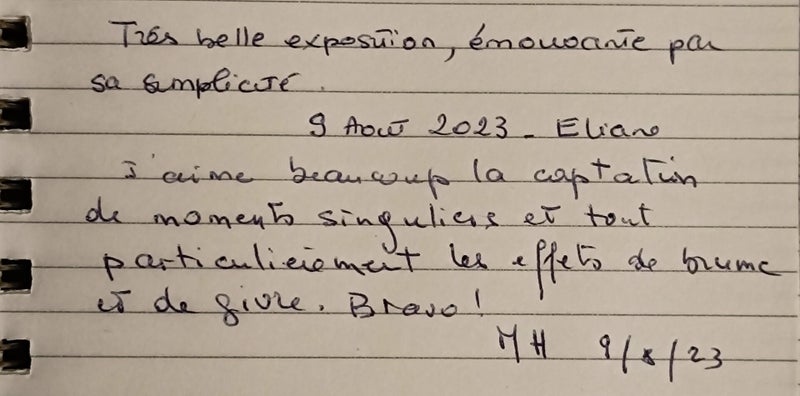 Très belle exposition, émouvante par
sa simplicité.
9 Août 2023 - Eliane
J'aime beaucoup la captation
de moments singuliers et tout
particulièrement les effets de brume
et de givre. Bravo!
MH 9/8/23